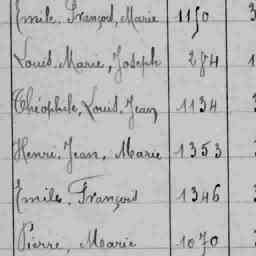 Emile, François, Marie 1150 3
Louis, Marie, Joseph 284 1
Théophile, Louis, Jean 1134 3
Henri, Jean, Marie 1353
Emile, François 1346
Pierre, Marie 1070